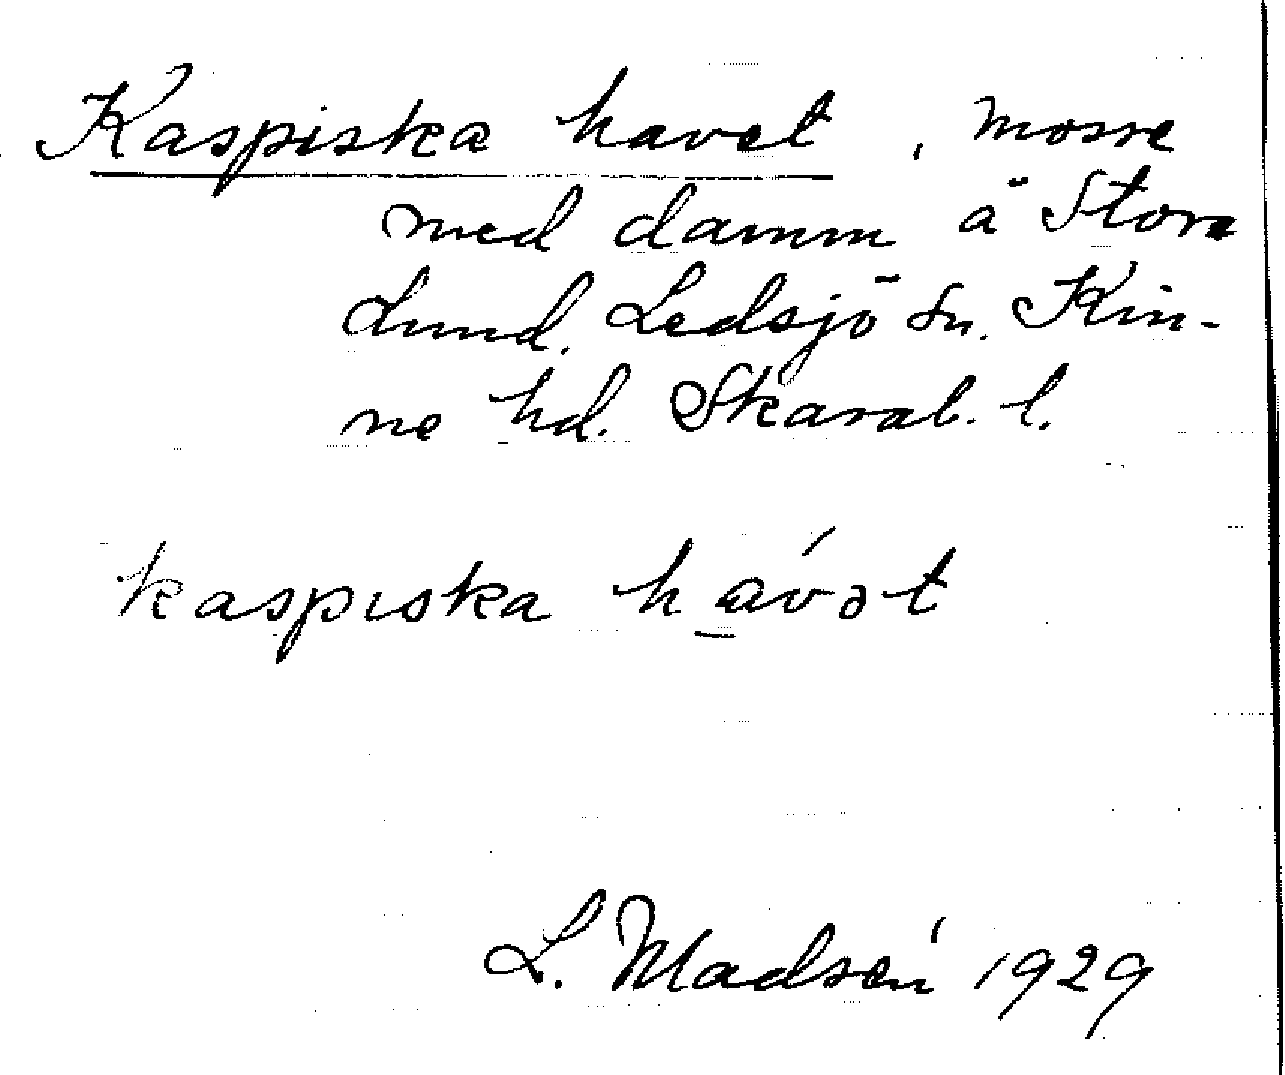 Kaspiska havet, mosse
med damm å Stora
Lund, Ledsjö sn. Kin-
ne hd. Skarab. l.
kaspıska há̲vət
L. Madsén 1929